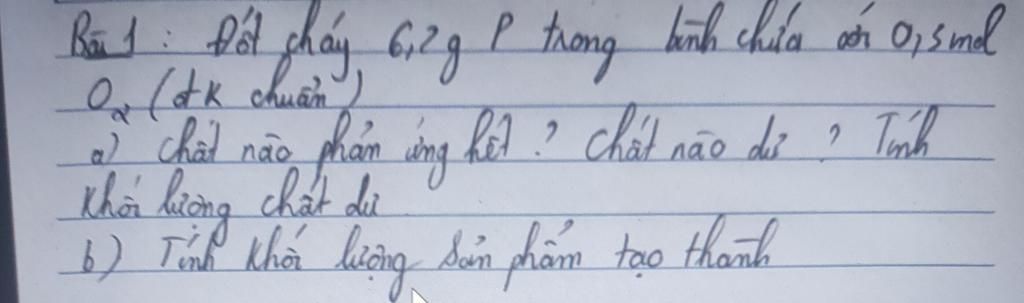 Bài 1 : Đốt cháy 6,2g P trong bình chứa 0,5 mol
O₂ (đk chuẩn)
a) Chất nào phản ứng hết ? Chất nào dư ? Tính
khối lượng chất dư
b) Tính khối lượng sản phẩm tạo thành